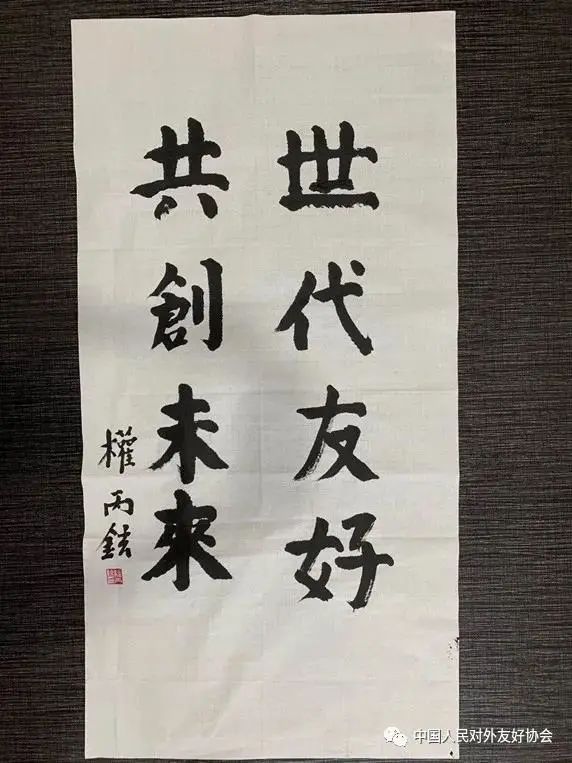 世代友好
共創未來
權丙鉉
中国人民对外友好协会